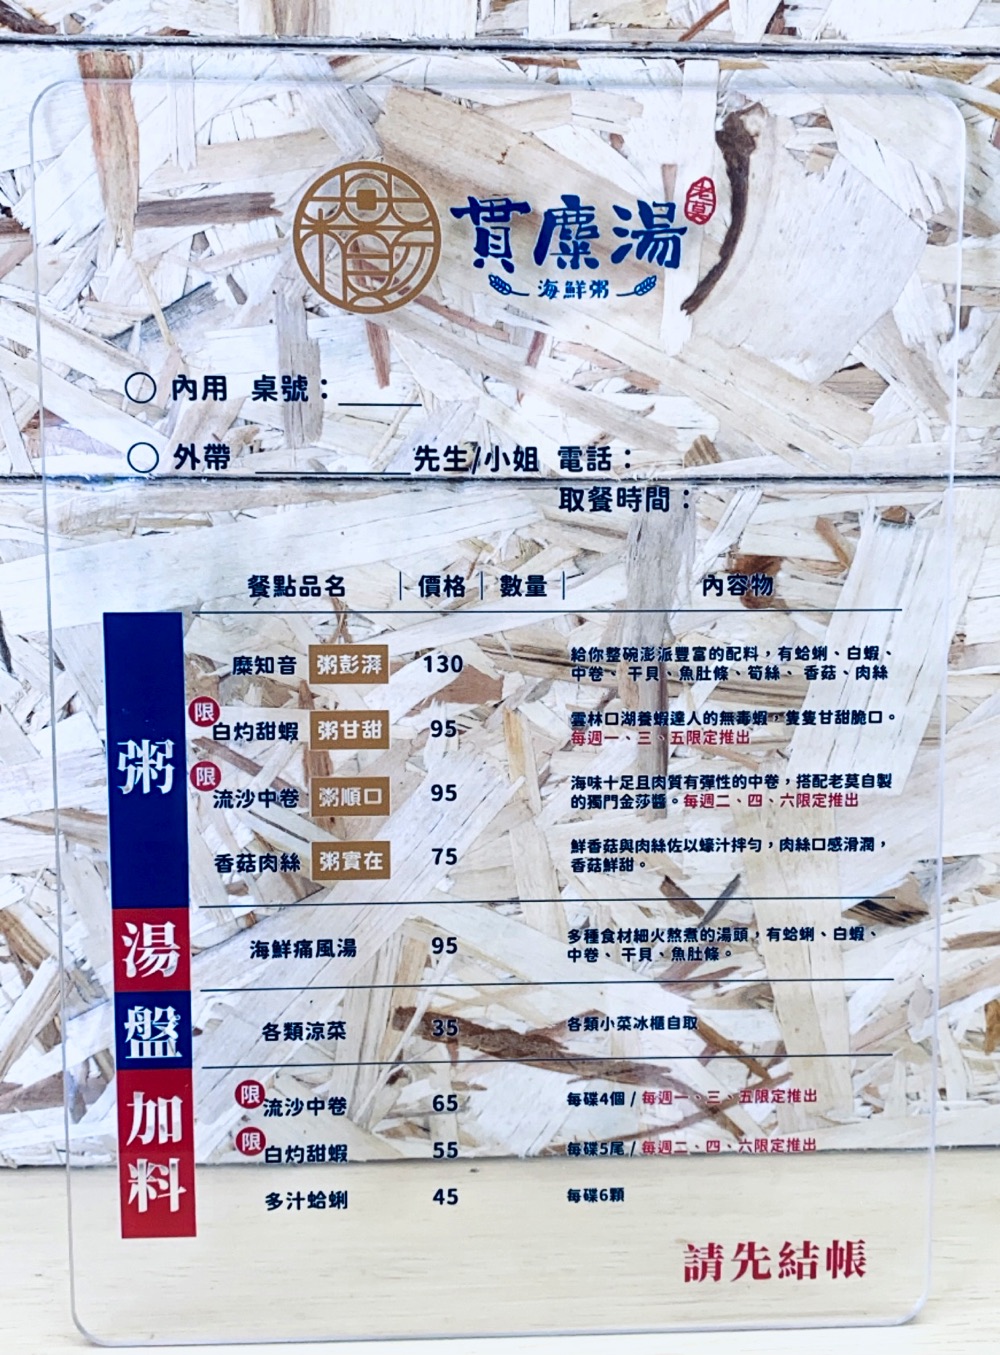 貫麋湯 老莫
海鮮粥
內用 桌號：
外帶 先生/小姐 電話：
取餐時間：
餐點品名 價格 數量 內容物
粥
糜知音 粥彭湃 130 給你整碗澎派豐富的配料，有蛤蜊、白蝦、
中卷、干貝、魚肚條、筍絲、香菇、肉絲
限 白灼甜蝦 粥甘甜 95 雲林口湖養蝦達人的無毒蝦，隻隻甘甜脆口。
每週一、三、五限定推出
限 流沙中卷 粥順口 95 海味十足且肉質有彈性的中卷，搭配老莫自製
的獨門金莎醬。每週二、四、六限定推出
香菇肉絲 粥實在 75 鮮香菇與肉絲佐以蠔汁拌勻，肉絲口感滑潤，
香菇鮮甜。
湯
海鮮痛風湯 95 多種食材細火熬煮的湯頭，有蛤蜊、白蝦、
中卷、干貝、魚肚條。
盤
各類涼菜 35 各類小菜冰櫃自取
加料
限 流沙中卷 65 每碟4個 / 每週一、三、五限定推出
限 白灼甜蝦 55 每碟5尾 / 每週二、四、六限定推出
多汁蛤蜊 45 每碟6顆
請先結帳